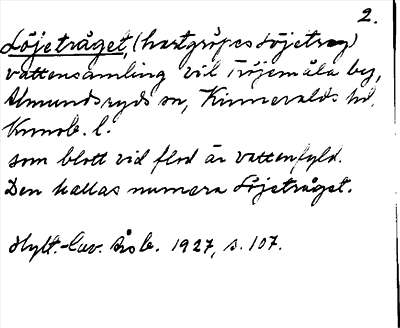 2.
Löjetråget, (hartgröpes Löjetrog)
vattensamling vid Tröjemåla by,
Almundsryds sn, Kinnevalds hd.
Kronob. l.
som blott vid flod är vattenfyld.
Den kallas numera Löjetråget.
Hylt.-Cav. Årsb. 1927, s. 107.